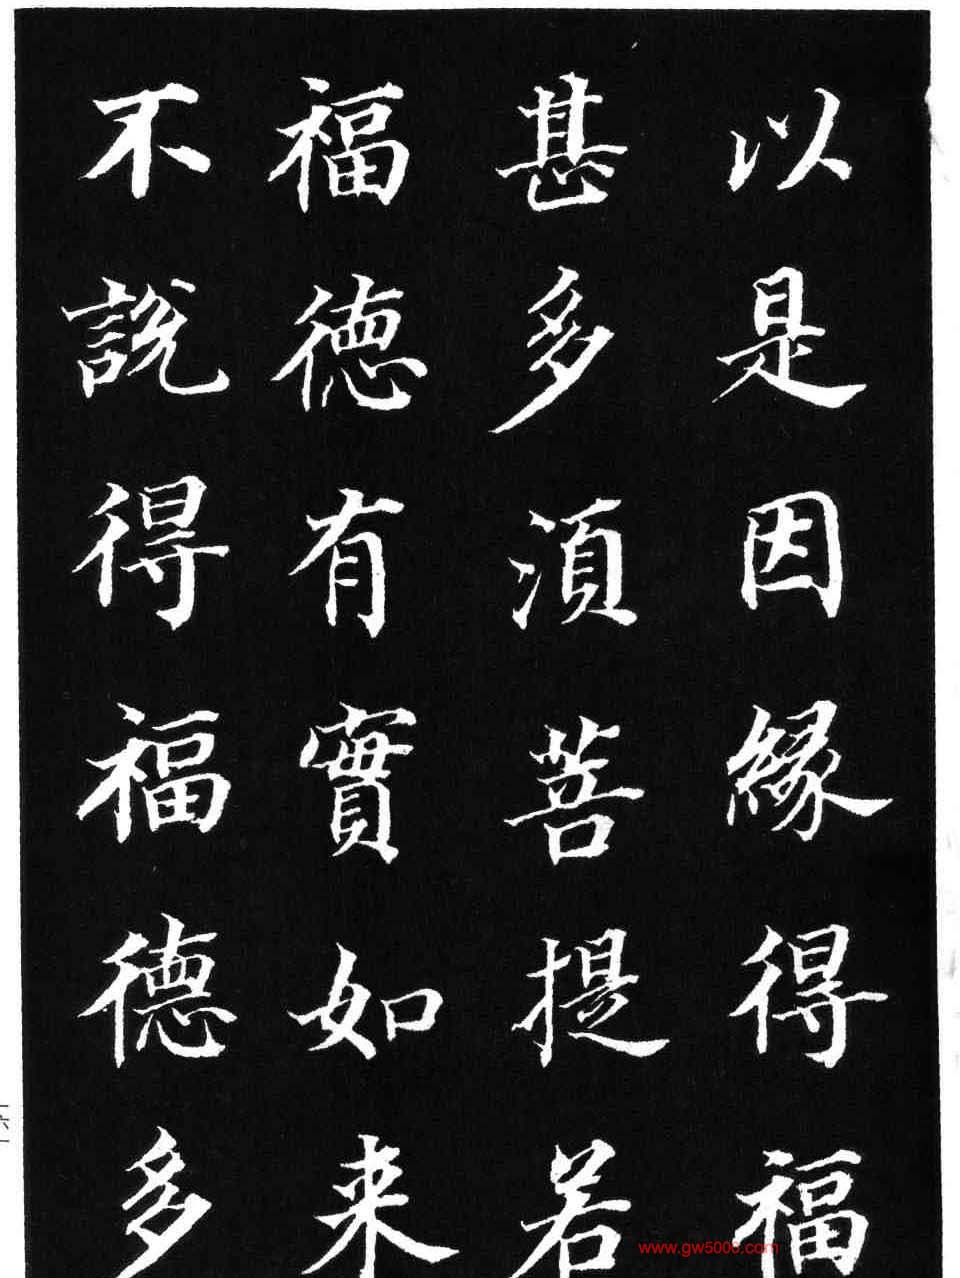 以是因緣得福
甚多湏菩提若
福德有實如来
不說得福德多
www.gw5000.com